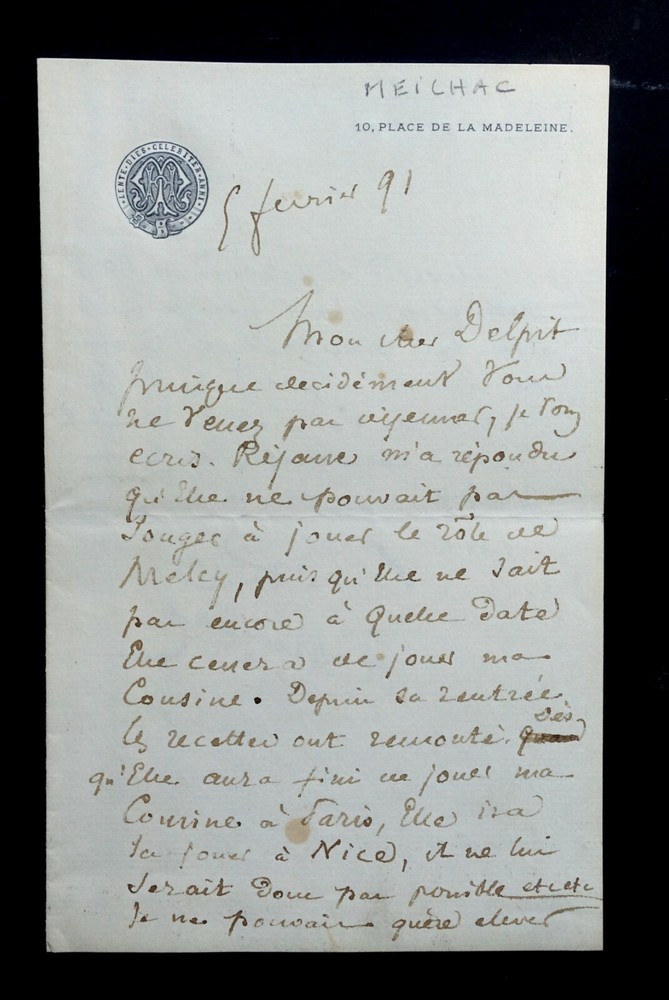 MEILHAC
10, PLACE DE LA MADELEINE.
LENTE·DIES·CELERITER·ANNI
5 fevrier 91
Mon cher Delpit
puisque decidément vous
ne venez pas dejeuner, je vous
ecris. Réjane m'a répondu
qu'Elle ne pouvait pas
songer à jouer le rôle de
, puis qu'Elle ne sait
pas encore à quelle date
Elle cessera de jouer ma
Cousine. Depuis sa rentrée
les recettes ont remonté. Dès
qu'Elle aura fini de jouer ma
Cousine à Paris, Elle ira
la jouer à Nice, il ne lui
serait donc pas possible etc etc
Je ne pouvais guère elever